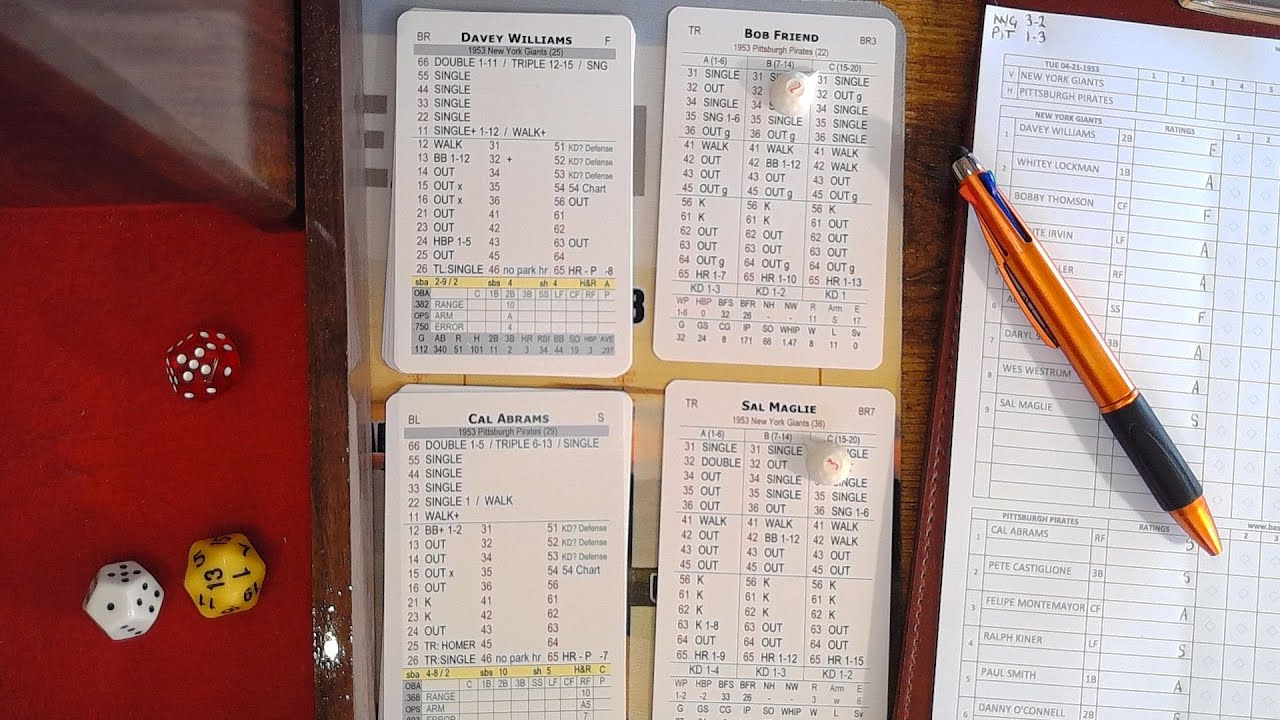 BR DAVEY WILLIAMS F
1953 New York Giants (25)
66 DOUBLE 1-11 / TRIPLE 12-15 / SNG
55 SINGLE
44 SINGLE
33 SINGLE
22 SINGLE
11 SINGLE+ 1-12 / WALK+
12 WALK 31 51 KD? Defense
13 BB 1-12 32 + 52 KD? Defense
14 OUT 34 53 KD? Defense
15 OUT x 35 54 54 Chart
16 OUT x 36 56 OUT
21 OUT 41 61
23 OUT 42 62
24 HBP 1-5 43 63 OUT
25 OUT 45 64
26 TL:SINGLE 46 no park hr 65 HR - P -8
sba 2-9 / 2 sbs 4 sh 4 H&R A
OBA C 1B 2B 3B SS LF CF RF P
.382 RANGE 10
OPS ARM A
750 ERROR 4
G AB R H 2B 3B HR RBI BB SO HBP AVE
112 340 51 101 11 2 3 34 44 19 3 .297
TR BOB FRIEND BR3
1953 Pittsburgh Pirates (22)
A (1-6) B (7-14) C (15-20)
31 SINGLE 31 31 SINGLE
32 OUT 32 32 OUT g
34 SINGLE 34 34 SINGLE
35 SNG 1-6 35 SINGLE 35 SINGLE
36 OUT g 36 OUT g 36 SINGLE
41 WALK 41 WALK 41 WALK
42 OUT 42 BB 1-12 42 WALK
43 OUT 43 OUT 43 OUT
45 OUT g 45 OUT g 45 OUT g
56 K 56 K 56 K
61 K 61 K 61 OUT
62 OUT 62 OUT 62 OUT
63 OUT 63 OUT 63 OUT
64 OUT g 64 OUT g 64 OUT g
65 HR 1-7 65 HR 1-10 65 HR 1-13
KD 1-3 KD 1-2 KD 1
WP HBP BFS BFR NH NW R Arm E
1-6 0 32 26 - - 11 S 17
G GS CG IP SO WHIP W L Sv
32 24 8 171 66 1.47 8 11 0
BL CAL ABRAMS S
1953 Pittsburgh Pirates (29)
66 DOUBLE 1-5 / TRIPLE 6-13 / SINGLE
55 SINGLE
44 SINGLE
33 SINGLE
22 SINGLE 1 / WALK
11 WALK+
12 BB+ 1-2 31 51 KD? Defense
13 OUT 32 52 KD? Defense
14 OUT 34 53 KD? Defense
15 OUT x 35 54 54 Chart
16 OUT 36 56
21 K 41 61
23 K 42 62
24 OUT 43 63
25 TR: HOMER 45 64
26 TR:SINGLE 46 no park hr 65 HR - P -7
sba 4-8 / 2 sbs 10 sh 5 H&R C
OBA C 1B 2B 3B SS LF CF RF P
.368 RANGE 10
OPS ARM A5
ERROR 7
TR SAL MAGLIE BR7
1953 New York Giants (36)
A (1-6) B (7-14) C (15-20)
31 SINGLE 31 SINGLE
32 DOUBLE 32 OUT
34 OUT 34 SINGLE SINGLE
35 OUT 35 SINGLE 35 SINGLE
36 OUT 36 OUT 36 SNG 1-6
41 WALK 41 WALK 41 WALK
42 OUT 42 BB 1-12 42 WALK
43 OUT 43 OUT 43 OUT
45 OUT 45 OUT 45 OUT
56 K 56 K 56 K
61 K 61 K 61 K
62 K 62 K 62 OUT
63 K 1-8 63 OUT 63 OUT
64 OUT 64 OUT 64 OUT
65 HR 1-9 65 HR 1-12 65 HR 1-15
KD 1-4 KD 1-3 KD 1-2
WP HBP BFS BFR NH NW R Arm E
1-2 -2 33 26 - - 3 w 6
G GS CG IP SO WHIP W L Sv
N/G 3-2
PIT 1-3
TUE 04-21-1953 1 2 3 4 5
V NEW YORK GIANTS
H PITTSBURGH PIRATES
NEW YORK GIANTS RATINGS 1 2
1 DAVEY WILLIAMS 2B F
2 WHITEY LOCKMAN 1B A
BOBBY THOMSON CF F
IRVIN LF A
RF
SS F
7 DARYL A
8 WES WESTRUM A
9 SAL MAGLIE S
PITTSBURGH PIRATES RATINGS
1 CAL ABRAMS RF S
2 PETE CASTIGLIONE 3B S
3 FELIPE MONTEMAYOR CF A
4 RALPH KINER LF S
5 PAUL SMITH 1B
6 DANNY O'CONNELL 2B